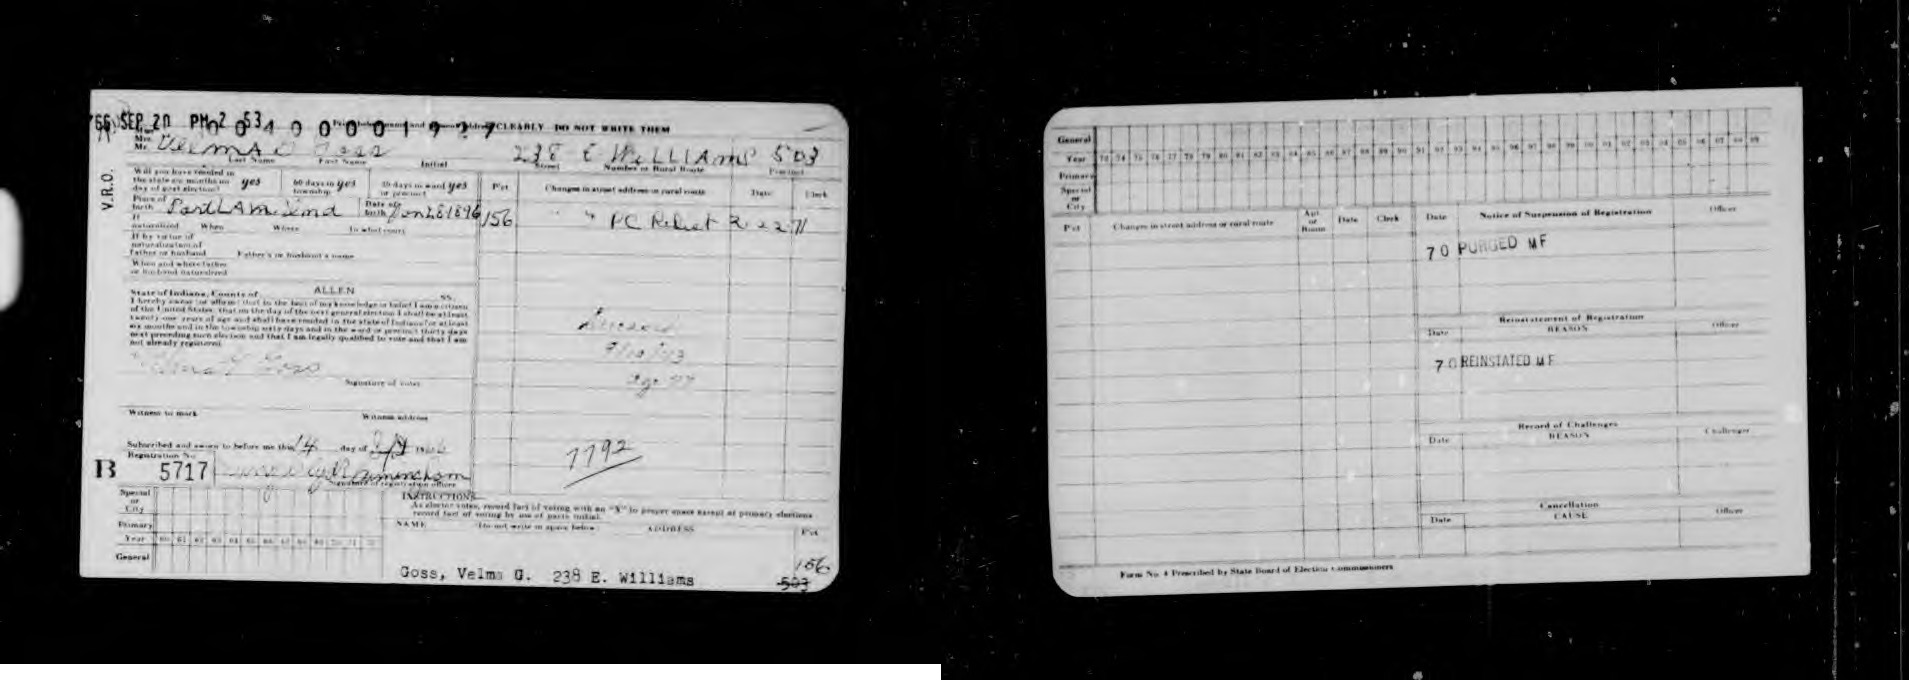 '66 SEP 20 PM 2 53
0 0 5 4 0 0 0 0 0 1 9 2 7
CLEARLY DO NOT WRITE THEM
Mrs.
Mr. Velma G Goss 238 E Williams 503
Last Name First Name Initial Street Number or Rural Route Precinct
V.R.O.
Will you have resided in the state six months on day of next election? yes 60 days in township yes 30 days in ward or precinct yes
P'ct Changes in street address or rural route Date Clerk
Place of birth Portland Ind Date of birth Jan 28 1896
156 " " PC Redist 2-22-71
If naturalized When Where In what court
If by virtue of naturalization of Father or husband Father's or husband's name
When and where father or husband naturalized
State of Indiana, County of ALLEN SS.
I hereby swear (or affirm) that to the best of my knowledge or belief I am a citizen
of the United States, that on the day of the next general election I shall be at least
twenty-one years of age and shall have resided in the state of Indiana for at least
six months and in the township sixty days and in the ward or precinct thirty days
next preceding such election and that I am legally qualified to vote and that I am
not already registered.
Deceased
9/10/73
age 77
Velma G Goss
Signature of voter
Witness to mark Witness address
Subscribed and sworn to before me this 14 day of 1966
7792
Registration No.
B 5717
Signature of registration officer
Special or City
Primary
Year 60 61 62 63 64 65 66 67 68 69 70 71 72
General
INSTRUCTIONS
As elector votes, record fact of voting with an "X" in proper space except at primary elections
record fact of voting by use of party initial.
NAME (Do not write in space below) ADDRESS P'ct
156
Goss, Velma G. 238 E. Williams 503
General
Year 73 74 75 76 77 78 79 80 81 82 83 84 85 86 87 88 89 90 91 92 93 94 95 96 97 98 99 00 01 02 03 04 05 06 07 08 09
Primary
Special or City
P'ct Changes in street address or rural route Apt or Room Date Clerk
Date Notice of Suspension of Registration Officer
70 PURGED MF
Reinstatement of Registration
Date REASON Officer
70 REINSTATED MF
Record of Challenges
Date REASON Challenger
Cancellation
Date CAUSE Officer
Form No. 4 Prescribed by State Board of Election Commissioners